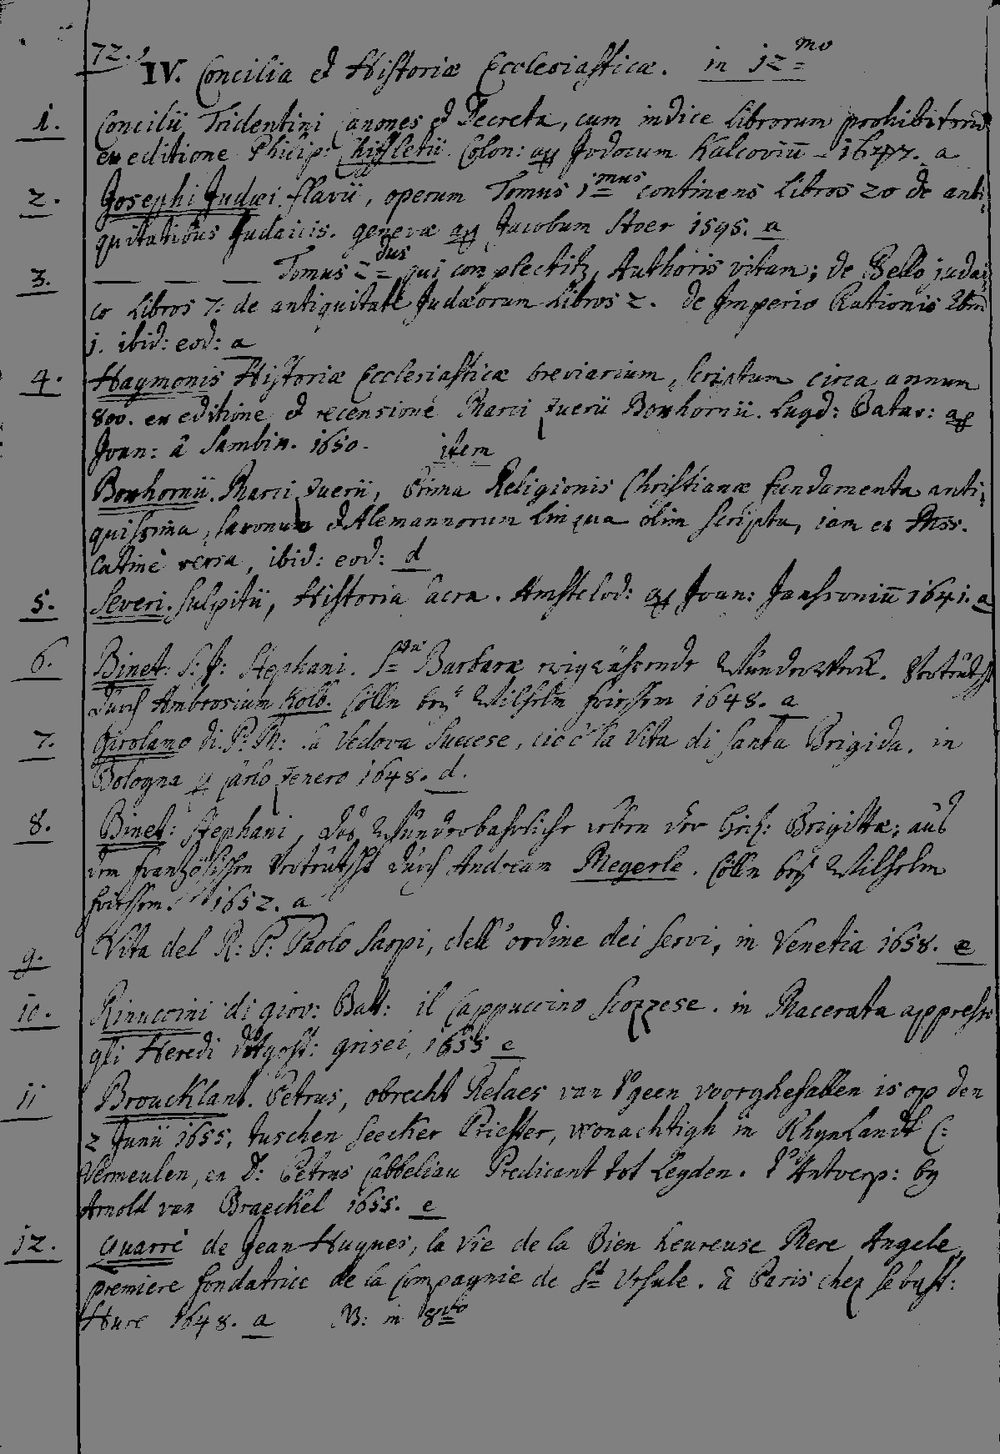 72.
IV. Concilia et Historiæ Ecclesiasticæ. in 12mo
1. Concilii Tridentini Canones et Decreta, cum indice librorum prohibitorum
ex editione Philip: Chiffletii Colon: apud Jodocum Kalcovium 1647. a
2. Josephi Judæi flavii, operum Tomus 1mus continens Libros 20 de anti-
quitatibus Judaicis. genevæ apud Jacobum Stoer 1595. a
3. — — — Tomus 2dus qui complectitur Authoris vitam; de Bello judai-
co Libros 7: de antiquitate Judæorum Libros 2. de Imperio Rationis Lbm
1. ibid: eod: a
4. Haymonis Historiæ Ecclesiasticæ breviarium, scriptum circa annum
800. ex editione et recensione Marci Zuerii Boxhornii. Lugd: Batav: ap
Joan: à Sambix. 1650. item
Boxhornii. Marci Zuerii, Prima Religionis Christianæ fundamenta anti-
quissima, saxonum et Alemannorum lingua olim scripta, iam ex Mss.
Latinè versa, ibid: eod: d
5. Severi. Sulpitii, Historia sacra. Amstelod: ap Joan: Janssonium 1641. a
6. Binet: S: J: Stephani. Stæ Barbaræ Wunderwerck. Verteutscht
durch Ambrosium Kolb. Cölln bey Wilhelm friessem 1648. a
7. Girolamo di P: M: la Vedova Suecese, cioè la Vita di santa Brigida. in
Bologna p Carlo Zenero 1648. d.
8. Binet: Stephani, das Wunderbahrliche leben der Brigittæ; aus
dem französischen Verteutscht durch Andream Megerle. Cölln bey Wilhelm
friessem. 1652. a
9. Vita del R: P: Paolo Sarpi, dell'ordine dei servi, in Venetia 1658. e
10. Rinuccini di giov: Batt: il Cappuccino Scozzese. in Macerata appresso
gli Heredi d'Agost: grisei, 1655 e
11 Brouckland. Petrus, obrecht Relaes van t'geen voorghefallen is op den
2 Junii 1655. tuschen seecker Priester, wonachtigh in Rhynlandt C:
Vermeulen, en D: Petrus Cabbeliau Predicant tot Leyden. t'Antwerp: by
Arnold van Braeckel 1655. e
12. Quarré de Jean Hugnes, la vie de la Bien heureuse Mere Angele,
premiere fondatrice de la Compagnie de Ste Ursule. à Paris chez Sebast:
Hure 1648. a NB: in 8vo